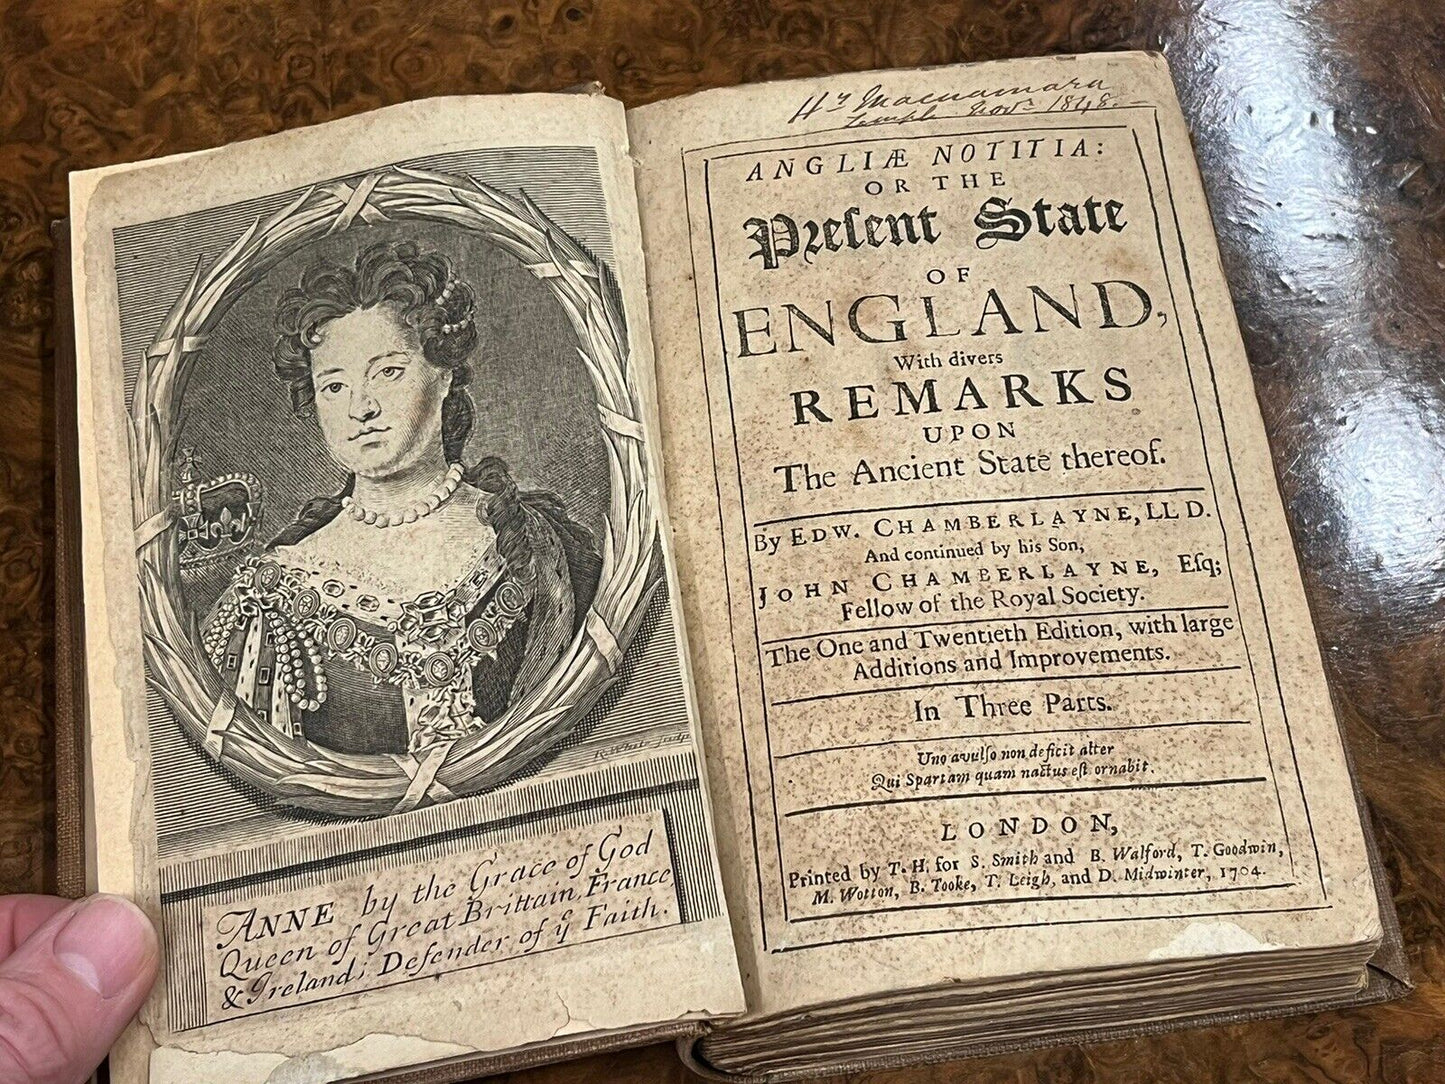 R. White Sculp
ANNE by the Grace of God
Queen of Great Brittain, France,
& Ireland; Defender of yᵉ Faith.
Hy Macnamara
Temple Novr 1848.
ANGLIÆ NOTITIA:
OR THE
Preſent State
OF
ENGLAND,
With divers
REMARKS
UPON
The Ancient State thereof.
By EDW. CHAMBERLAYNE, LL D.
And continued by his Son,
JOHN CHAMBERLAYNE, Eſq;
Fellow of the Royal Society.
The One and Twentieth Edition, with large
Additions and Improvements.
In Three Parts.
Uno avulſo non deficit alter
Qui Spartam quam nactus eſt ornabit.
LONDON,
Printed by T. H. for S. Smith and B. Walford, T. Goodwin,
M. Wotton, B. Tooke, T. Leigh, and D. Midwinter, 1704.